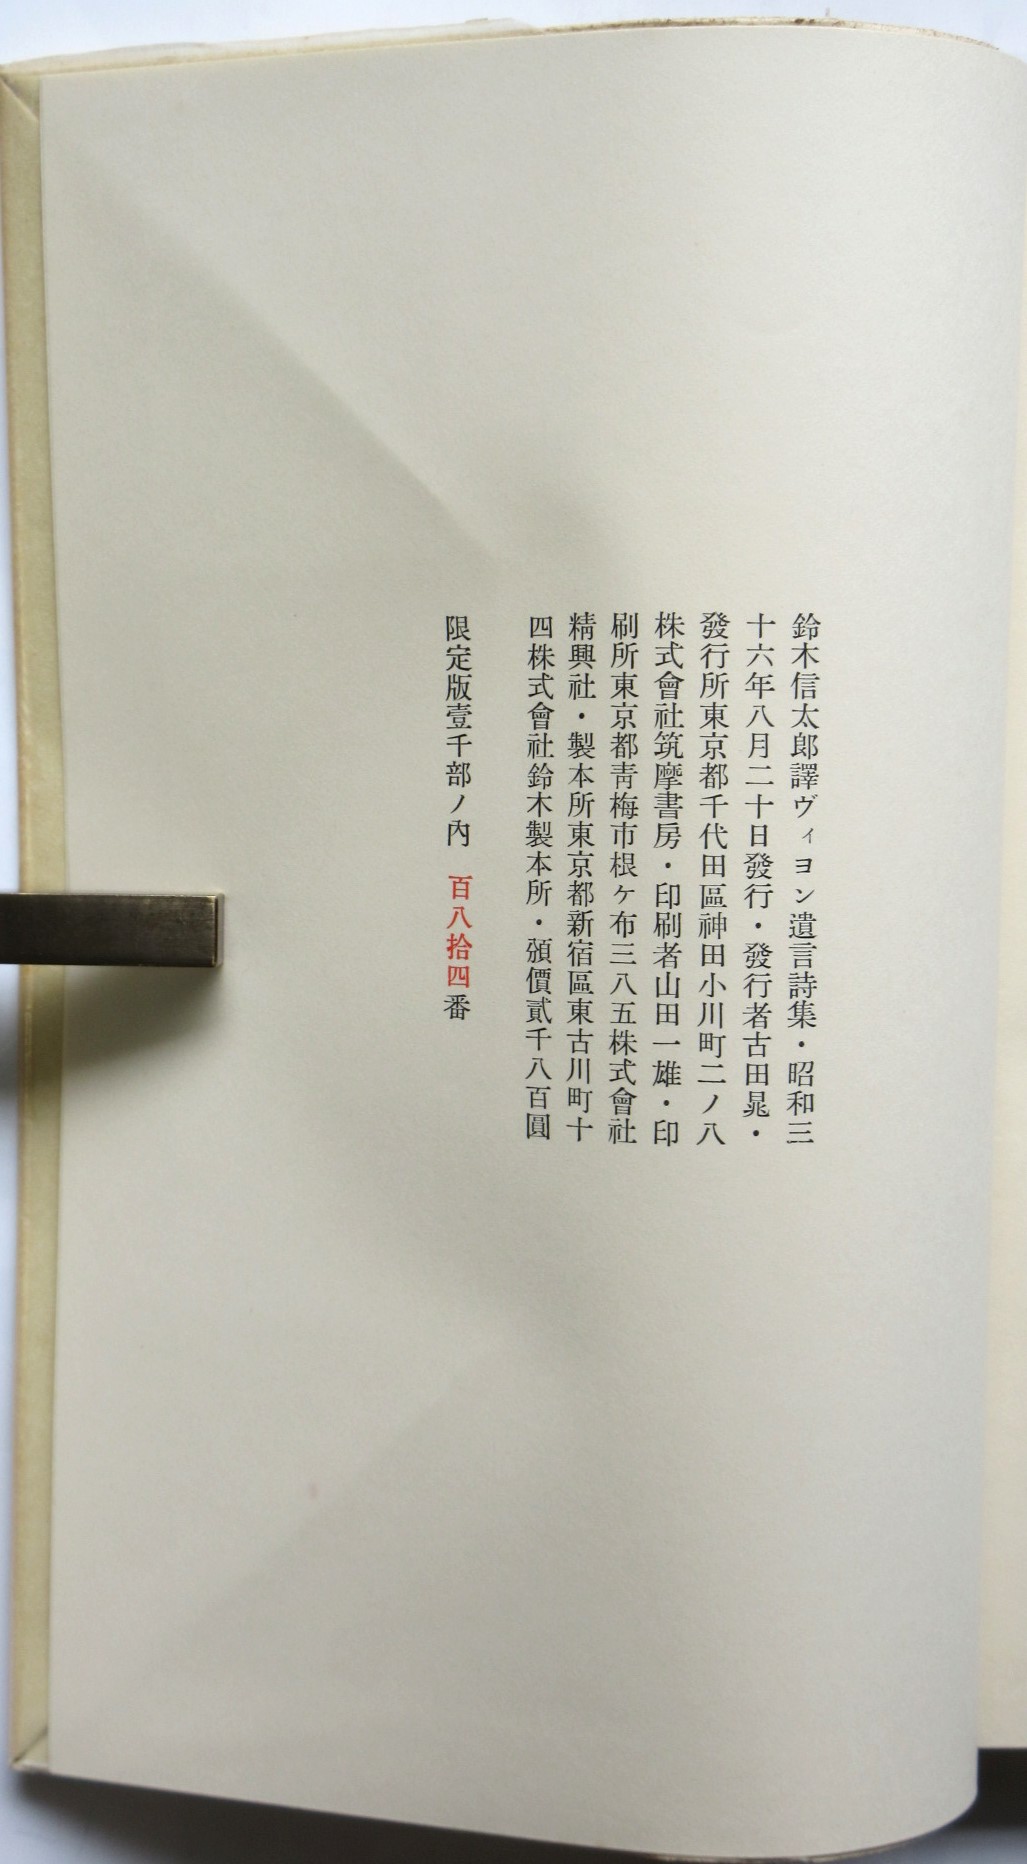 鈴木信太郎譯ヴィヨン遺言詩集・昭和三
十六年八月二十日發行・發行者古田晁・
發行所東京都千代田區神田小川町二ノ八
株式會社筑摩書房・印刷者山田一雄・印
刷所東京都靑梅市根ケ布三八五株式會社
精興社・製本所東京都新宿區東古川町十
四株式會社鈴木製本所・頒價貳千八百圓
限定版壹千部ノ內 百八拾四番